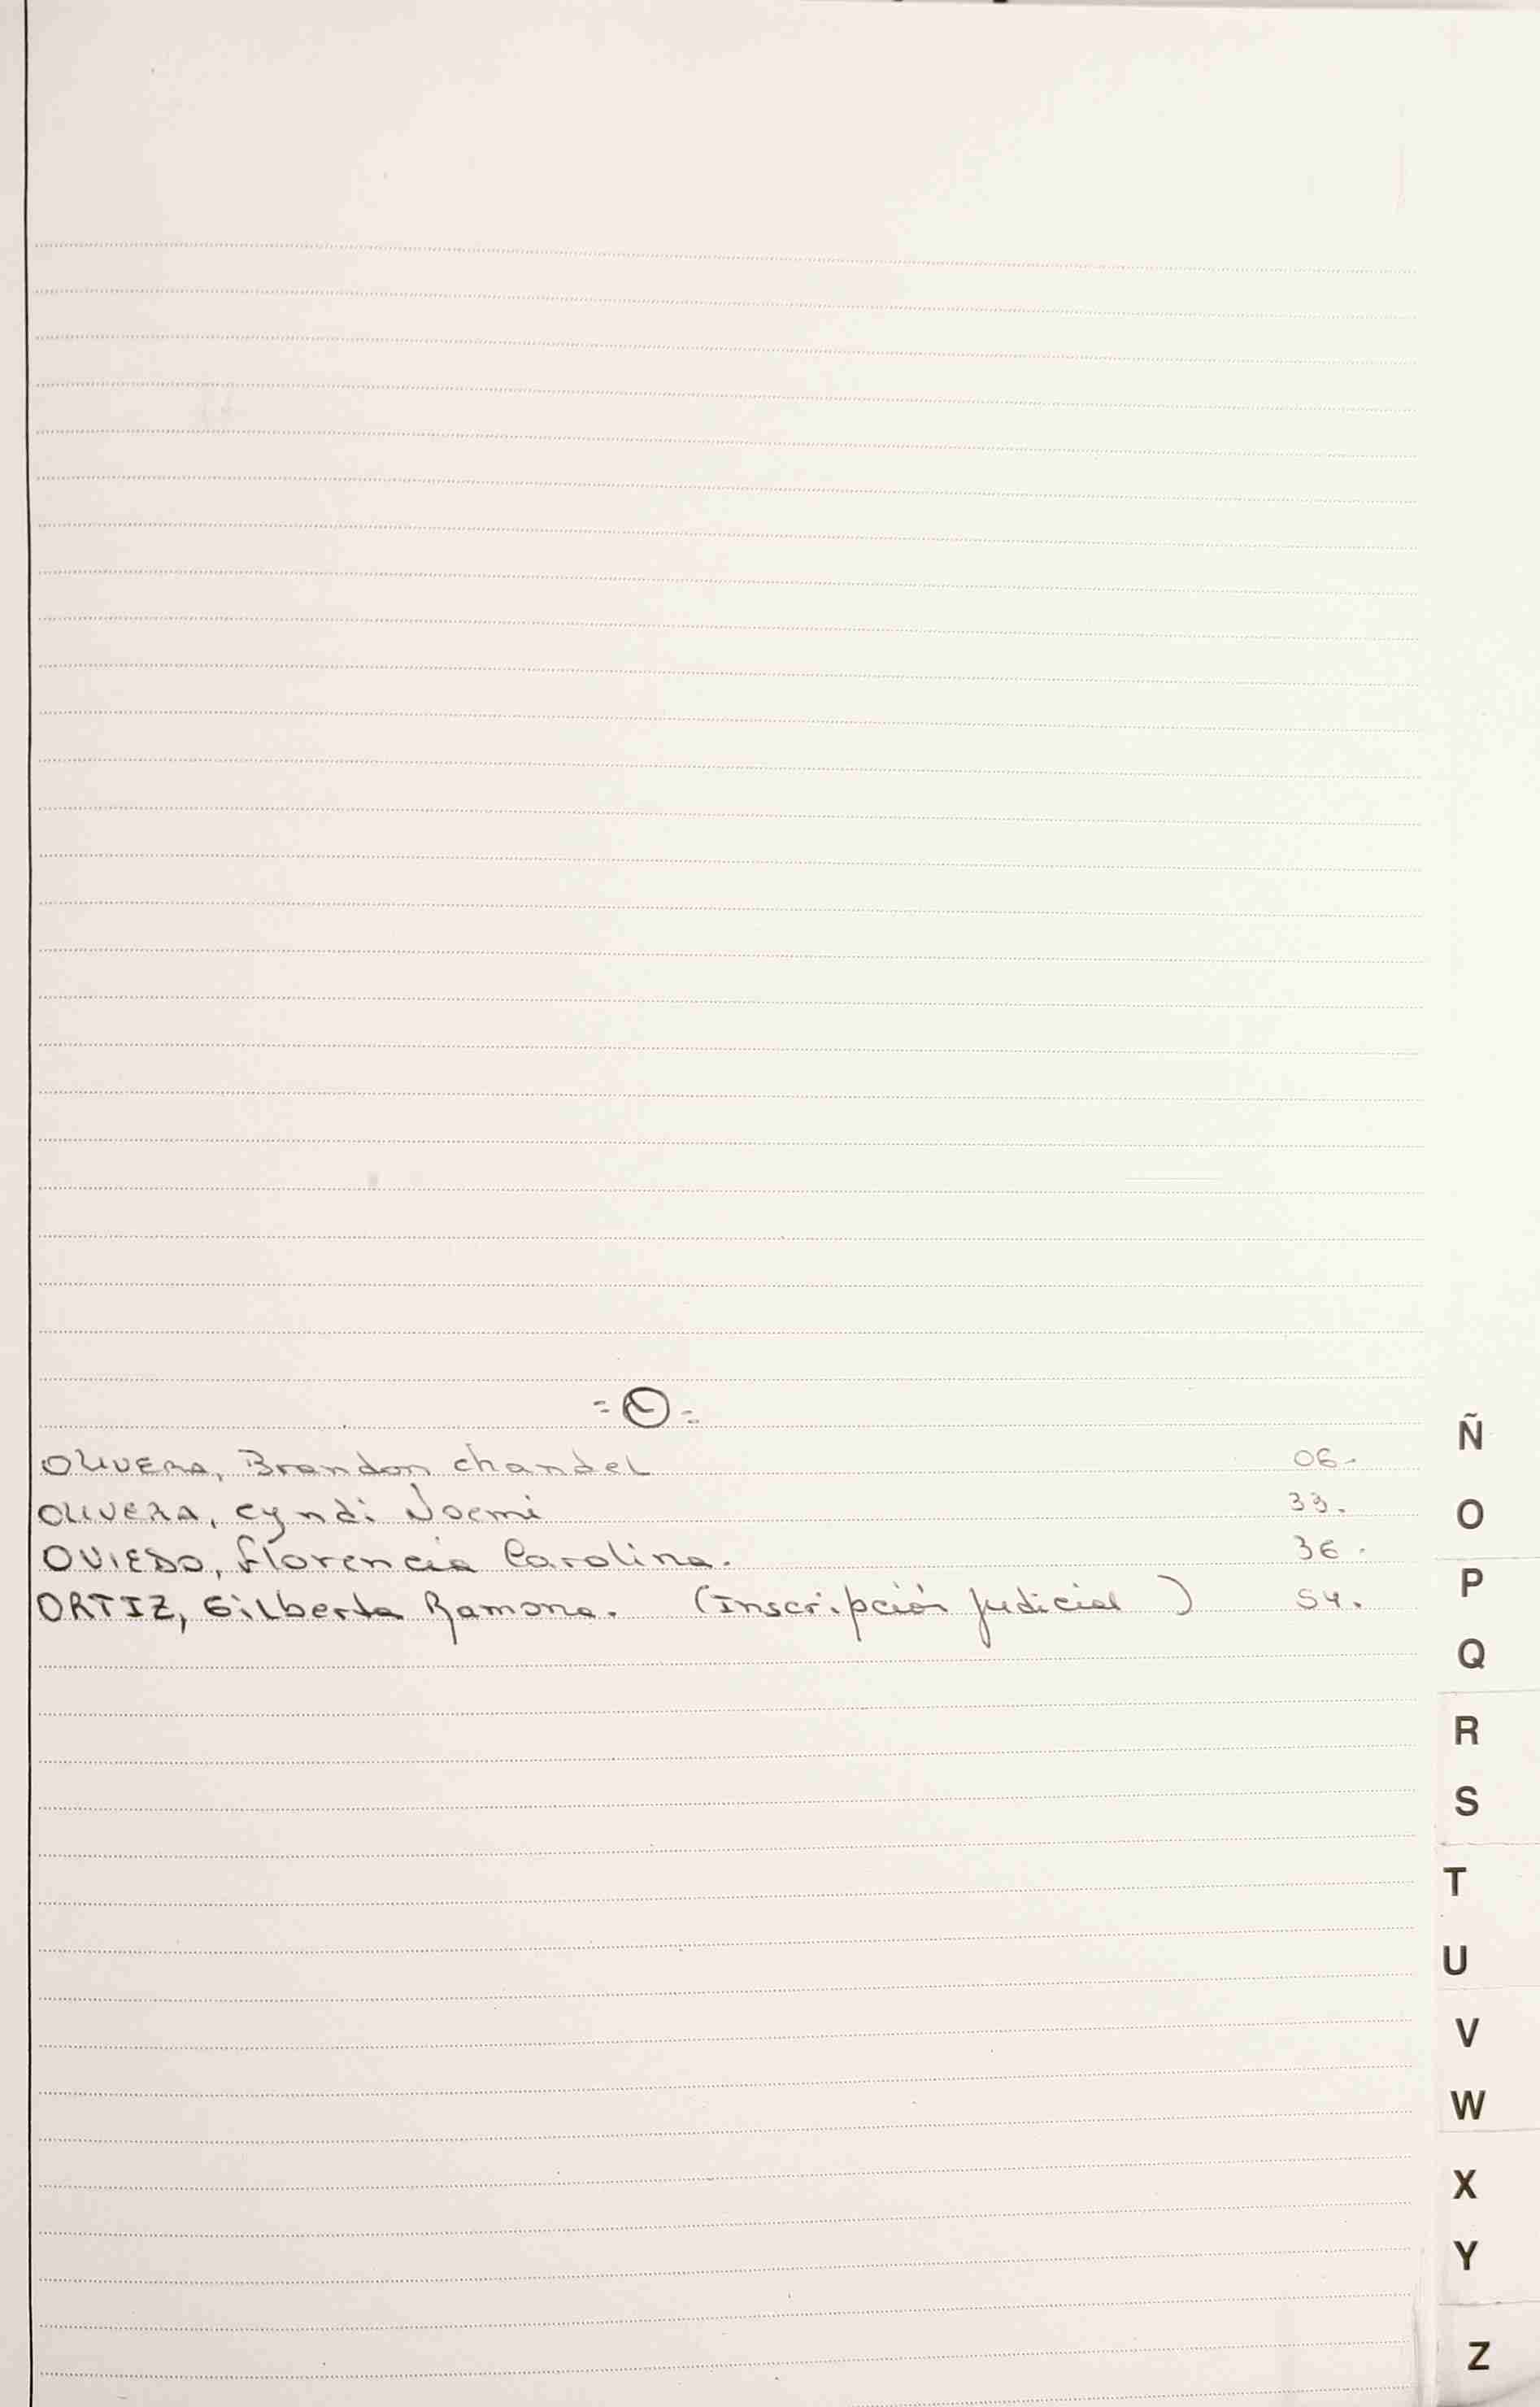 =O=
OLIVERA, Brandon Chandel 06.-
OLIVERA, Cyndi Noemi 33.-
OVIEDO, Florencia Carolina. 36.
ORTIZ, Gilberta Ramona. (Inscripción Judicial) 54.
Ñ
O
P
Q
R
S
T
U
V
W
X
Y
Z